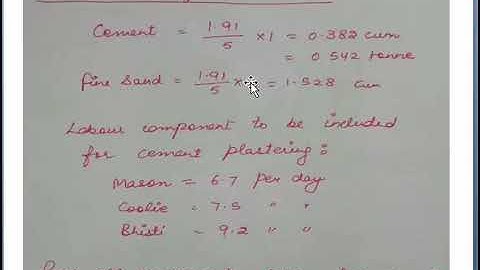 Cement = 1.91/5 × 1 = 0.382 cum
= 0.542 tonne
fine Sand = 1.91/5 × = 1.528 cum
Labour component to be included
for cement plastering:
Mason = 6.7 per day
Coolie = 7.5 " "
Bhisti = 9.2 " "